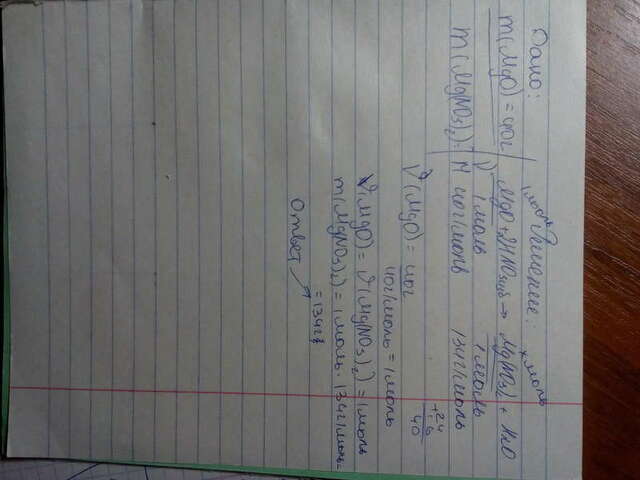 Дано:
m(MgO) = 40г
m(Mg(NO₃)₂)-
Решение:
1 моль x моль
MgO + 2HNO₃ → Mg(NO₃)₂ + H₂O
ν 1 моль 1 моль
M 40г/моль 134г/моль
24
+16
40
ν(MgO) = 40г
40г/моль = 1 моль
ν(MgO) = ν(Mg(NO₃)₂) = 1 моль
m(Mg(NO₃)₂) = 1 моль · 134г/моль =
= 134г
Ответ